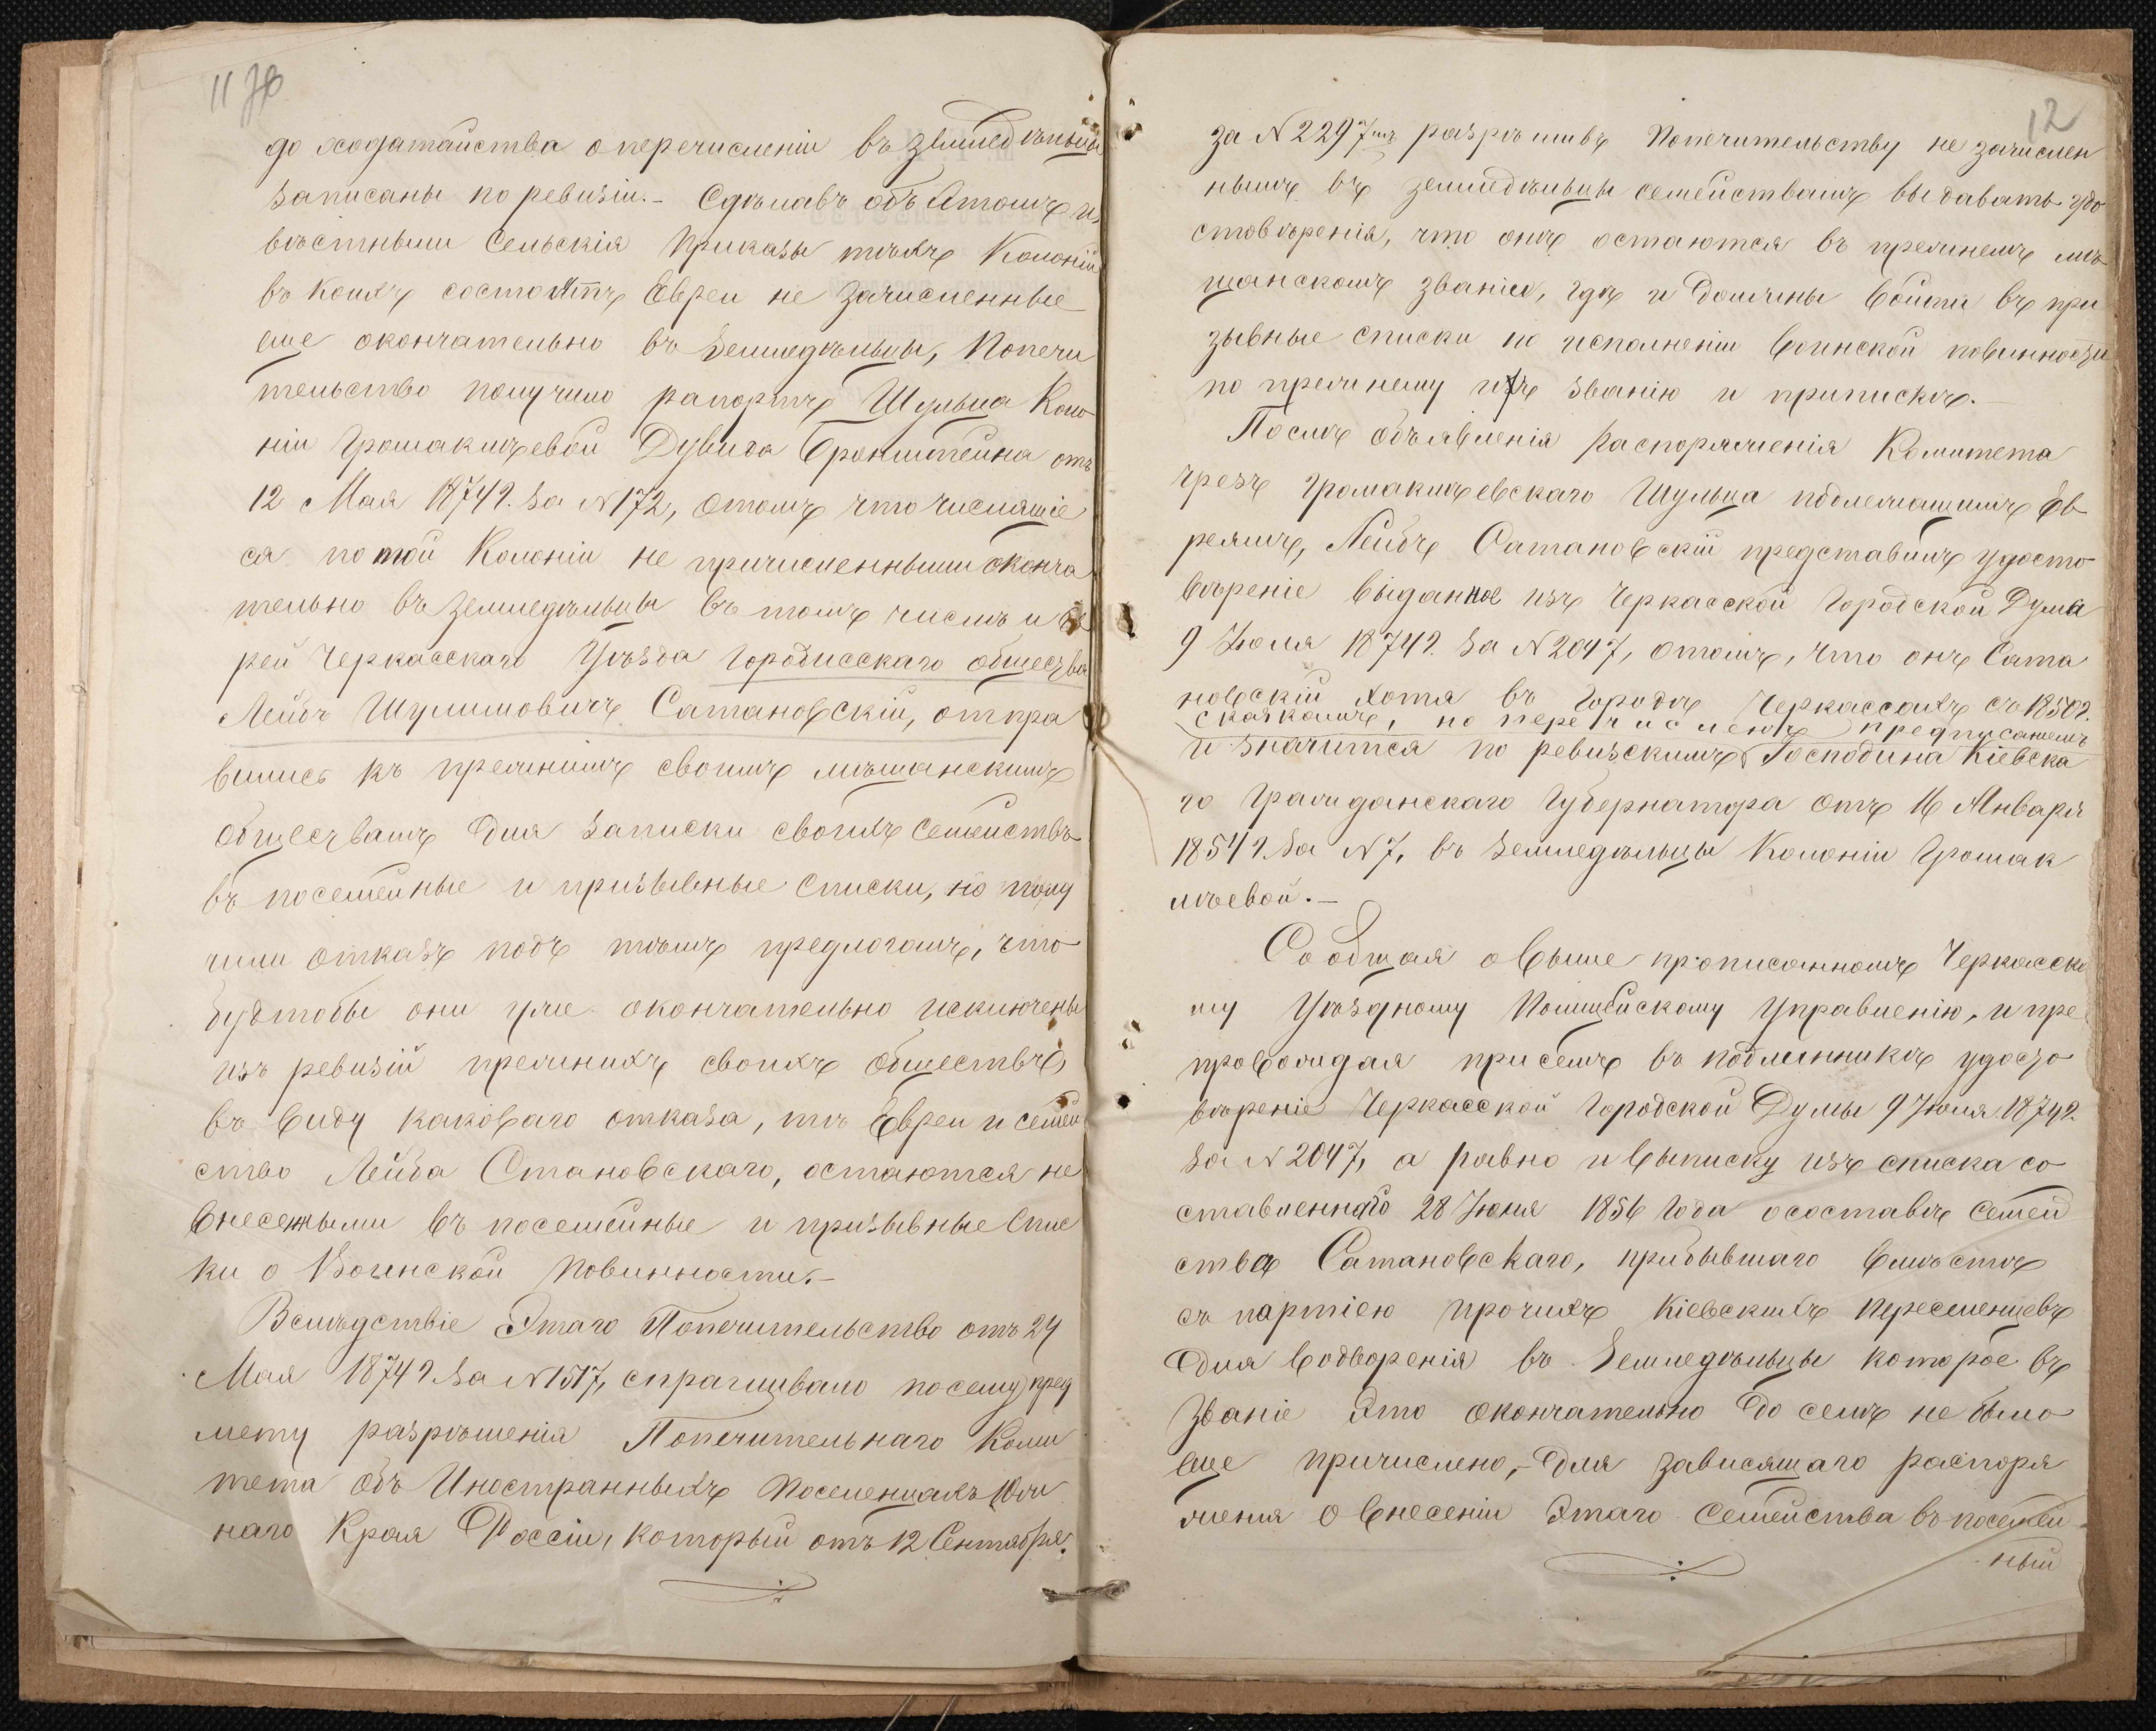 11 об
до ходатайства о перечисленіи въ земледѣльцы
записаны по ревизіи.- Сдѣлавъ объ этомъ из
вѣстными Сельскія Приказы тѣхъ Колоній
въ коихъ состоятъ Евреи не зачисленные
еще окончательно въ земледѣльцы, Попечи
тельство получило рапортъ Шульца Коло
ніи Громаклѣевой Дувида Бронштейна отъ
12 Мая 1874 г. за N 172, о томъ что числящіе
ся по той Колоніи не причисленными оконча
тельно въ земледѣльцы въ томъ числѣ и Ев
рей Черкасскаго Уѣзда Городисскаго общества
Лейбъ Шулимовичъ Сатановскій, отпра
вились къ прежнимъ своимъ мѣщанскимъ
обществамъ для записки своихъ семействъ
въ посемейные и призывные списки, но полу
чили отказъ подъ тѣмъ предлогомъ, что
будтобы они уже окончательно исключены
изъ ревизій прежнихъ своихъ обществъ,
въ виду каковаго отказа, тѣ Евреи и семей
ство Лейба Становскаго, остаются не
внесенными въ посемейные и призывные спис
ки о Воинской повинности.-
Вслѣдствіе этаго Попечительство отъ 24
Мая 1874 г. за N 1517, спрашивало по сему пред
мету разрѣшенія Попечительнаго Коми
тета объ Иностранныхъ Поселенцахъ Юж
наго Края Россіи, который отъ 12 Сентября
12
за N 2297мъ разрѣшивъ Попечительству не зачислен
нымъ въ земледѣльцы семействамъ выдавать удо
стовѣренія, что онѣ остаются въ прежнемъ мѣ
щанскомъ званіи, гдѣ и должны войти въ при
зывные списки по исполненіи воинской повинности
по прежнему ихъ званію и припискѣ.-
Послѣ объявленія распоряженія Комитета
чрезъ Громаклѣевскаго Шульца подлежащимъ Ев
реямъ, Лейбъ Сатановскій представилъ удосто
вѣреніе выданное изъ Черкасской Городской Думы
9 Іюля 1874 г. за N 2047, о томъ, что онъ Сата
новскій хотя въ Городѣ Черкассахъ съ 1850 г.
сказкамъ, но перечисленъ предписаніемъ
и значится по ревизскимъ Господина Кіевска
го Гражданскаго Губернатора отъ 16 Января
1854 г. за N 7, въ земледѣльцы Колоніи Громак
лѣевой.-
Сообщая о вышепрописанномъ Черкасско
му Уѣздному Полицейскому Управленію, и пре
провождая при семъ въ подлинникѣ удосто
вѣреніе Черкасской Городской Думы 9 Іюля 1874 г.
за N 2047, а равно и выписку изъ списка со
ставленнаго 28 Іюня 1856 года о составѣ семей
ства Сатановскаго, прибывшаго вмѣстѣ
съ партіею прочихъ Кіевскихъ переселенцевъ
для водворенія въ земледѣльцы которое въ
званіе это окончательно до семъ не было
еще причислено,- для зависящаго распоря
женія о внесеніи этаго семейства въ посемей
ный